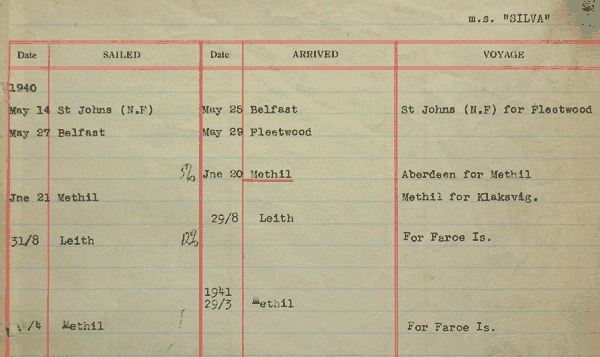 m.s. "SILVA"
Date SAILED Date ARRIVED VOYAGE
1940
May 14 St Johns (N.F) May 25 Belfast St Johns (N.F) for Fleetwood
May 27 Belfast May 29 Fleetwood
Jne 20 Methil Aberdeen for Methil
Jne 21 Methil Methil for Klaksvig.
29/8 Leith
31/8 Leith For Faroe Is.
1941
29/3 Methil
/4 Methil For Faroe Is.